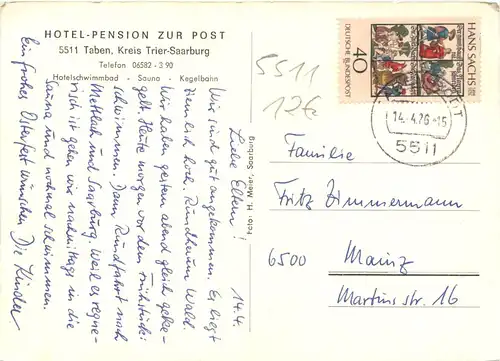 HOTEL-PENSION ZUR POST
5511 Taben, Kreis Trier-Saarburg
Telefon 06582 - 3 90
Hotelschwimmbad - Sauna - Kegelbahn
14.4.
Liebe Eltern!
Wir sind gut angekommen. Es liegt
ziemlich hoch. Rundherum Wald.
Wir haben gestern abend gleich geke-
gelt. Heute morgen vor dem Frühstück
schwimmen. Dann Rundfahrt nach
Mettlach und Saarburg. Weil es regne-
risch ist gehen wir nachmittags in die
Sauna und nochmal schwimmen.
Ein frohes Osterfest wünschen Die Kinder
Foto: H. Meier, Saarburg
5511
12€
HANS SACHS
DEUTSCHE BUNDESPOST
40
14.4.76-15
5511
Familie
Fritz Zimmermann
6500 Mainz
Martinsstr. 16